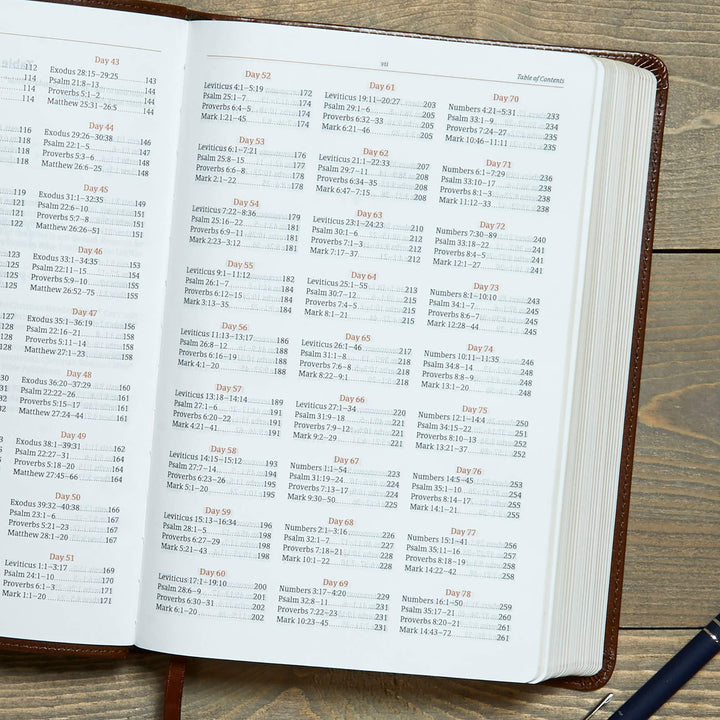 112
114
114
114
116
118
118
118
119
121
121
121
123
125
125
125
128
128
128
Day 43
Exodus 28:15–29:25 143
Psalm 21:8–13 144
Proverbs 5:1–2 144
Matthew 25:31–26:5 144
Day 44
Exodus 29:26–30:38 146
Psalm 22:1–5 147
Proverbs 5:3–6 148
Matthew 26:6–25 148
Day 45
Exodus 31:1–32:35 149
Psalm 22:6–10 151
Proverbs 5:7–8 151
Matthew 26:26–51 151
Day 46
Exodus 33:1–34:35 153
Psalm 22:11–15 154
Proverbs 5:9–10 155
Matthew 26:52–75 155
Day 47
Exodus 35:1–36:19 156
Psalm 22:16–21 158
Proverbs 5:11–14 158
Matthew 27:1–23 158
Day 48
Exodus 36:20–37:29 160
Psalm 22:22–26 161
Proverbs 5:15–17 161
Matthew 27:24–44 161
Day 49
Exodus 38:1–39:31 162
Psalm 22:27–31 164
Proverbs 5:18–20 164
Matthew 27:45–66 164
Day 50
Exodus 39:32–40:38 166
Psalm 23:1–6 167
Proverbs 5:21–23 167
Matthew 28:1–20 167
Day 51
Leviticus 1:1–3:17 169
Psalm 24:1–10 170
Proverbs 6:1–3 171
Mark 1:1–20 171
vii
Table of Contents
Day 52
Leviticus 4:1–5:19 172
Psalm 25:1–7 174
Proverbs 6:4–5 174
Mark 1:21–45 174
Day 53
Leviticus 6:1–7:21 176
Psalm 25:8–15 177
Proverbs 6:6–8 178
Mark 2:1–22 178
Day 54
Leviticus 7:22–8:36 179
Psalm 25:16–22 181
Proverbs 6:9–11 181
Mark 2:23–3:12 181
Day 55
Leviticus 9:1–11:12 182
Psalm 26:1–7 184
Proverbs 6:12–15 184
Mark 3:13–35 184
Day 56
Leviticus 11:13–13:17 186
Psalm 26:8–12 188
Proverbs 6:16–19 188
Mark 4:1–20 188
Day 57
Leviticus 13:18–14:14 189
Psalm 27:1–6 191
Proverbs 6:20–22 191
Mark 4:21–41 191
Day 58
Leviticus 14:15–15:12 193
Psalm 27:7–14 194
Proverbs 6:23–26 195
Mark 5:1–20 195
Day 59
Leviticus 15:13–16:34 196
Psalm 28:1–5 198
Proverbs 6:27–29 198
Mark 5:21–43 198
Day 60
Leviticus 17:1–19:10 200
Psalm 28:6–9 201
Proverbs 6:30–31 202
Mark 6:1–20 202
Day 61
Leviticus 19:11–20:27 203
Psalm 29:1–6 205
Proverbs 6:32–33 205
Mark 6:21–46 205
Day 62
Leviticus 21:1–22:33 207
Psalm 29:7–11 208
Proverbs 6:34–35 208
Mark 6:47–7:15 208
Day 63
Leviticus 23:1–24:23 210
Psalm 30:1–6 212
Proverbs 7:1–3 212
Mark 7:17–37 212
Day 64
Leviticus 25:1–55 213
Psalm 30:7–12 215
Proverbs 7:4–5 215
Mark 8:1–21 215
Day 65
Leviticus 26:1–46 217
Psalm 31:1–8 218
Proverbs 7:6–8 218
Mark 8:22–9:1 218
Day 66
Leviticus 27:1–34 220
Psalm 31:9–18 221
Proverbs 7:9–12 221
Mark 9:2–29 221
Day 67
Numbers 1:1–54 223
Psalm 31:19–24 225
Proverbs 7:13–17 225
Mark 9:30–50 225
Day 68
Numbers 2:1–3:16 226
Psalm 32:1–7 227
Proverbs 7:18–21 228
Mark 10:1–22 228
Day 69
Numbers 3:17–4:20 229
Psalm 32:8–11 231
Proverbs 7:22–23 231
Mark 10:23–45 231
Day 70
Numbers 4:21–5:31 233
Psalm 33:1–9 234
Proverbs 7:24–27 235
Mark 10:46–11:11 235
Day 71
Numbers 6:1–7:29 236
Psalm 33:10–17 238
Proverbs 8:1–3 238
Mark 11:12–33 238
Day 72
Numbers 7:30–89 240
Psalm 33:18–22 241
Proverbs 8:4–5 241
Mark 12:1–27 241
Day 73
Numbers 8:1–10:10 243
Psalm 34:1–7 245
Proverbs 8:6–7 245
Mark 12:28–44 245
Day 74
Numbers 10:11–11:35 246
Psalm 34:8–14 248
Proverbs 8:8–9 248
Mark 13:1–20 248
Day 75
Numbers 12:1–14:4 250
Psalm 34:15–22 251
Proverbs 8:10–13 252
Mark 13:21–37 252
Day 76
Numbers 14:5–45 253
Psalm 35:1–10 254
Proverbs 8:14–17 255
Mark 14:1–21 255
Day 77
Numbers 15:1–41 256
Psalm 35:11–16 257
Proverbs 8:18–19 258
Mark 14:22–42 258
Day 78
Numbers 16:1–50 259
Psalm 35:17–21 260
Proverbs 8:20–21 261
Mark 14:43–72 261